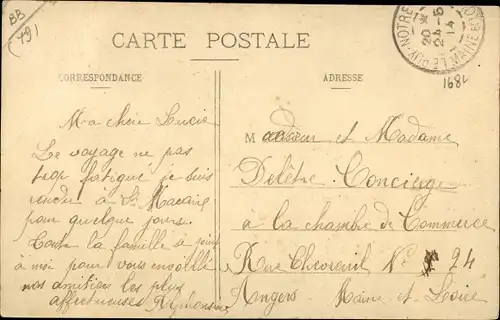 BB
491
CARTE POSTALE
CORRESPONDANCE
ADRESSE
LE PUY-NOTRE
20 24-5 14
MAINE
1682
Ma chère Lucie
Le voyage ne pas
trop fatigué je suis
rendu à St Macaire
pour quelque jours.
Toute la famille à joint
à moi pour vous
nos amitiées les plus
affectueuses
M et Madame
Delêtre Concierge
a la chambre de Commerce
Rue Chevreul N° 24
Angers Maine et Loire